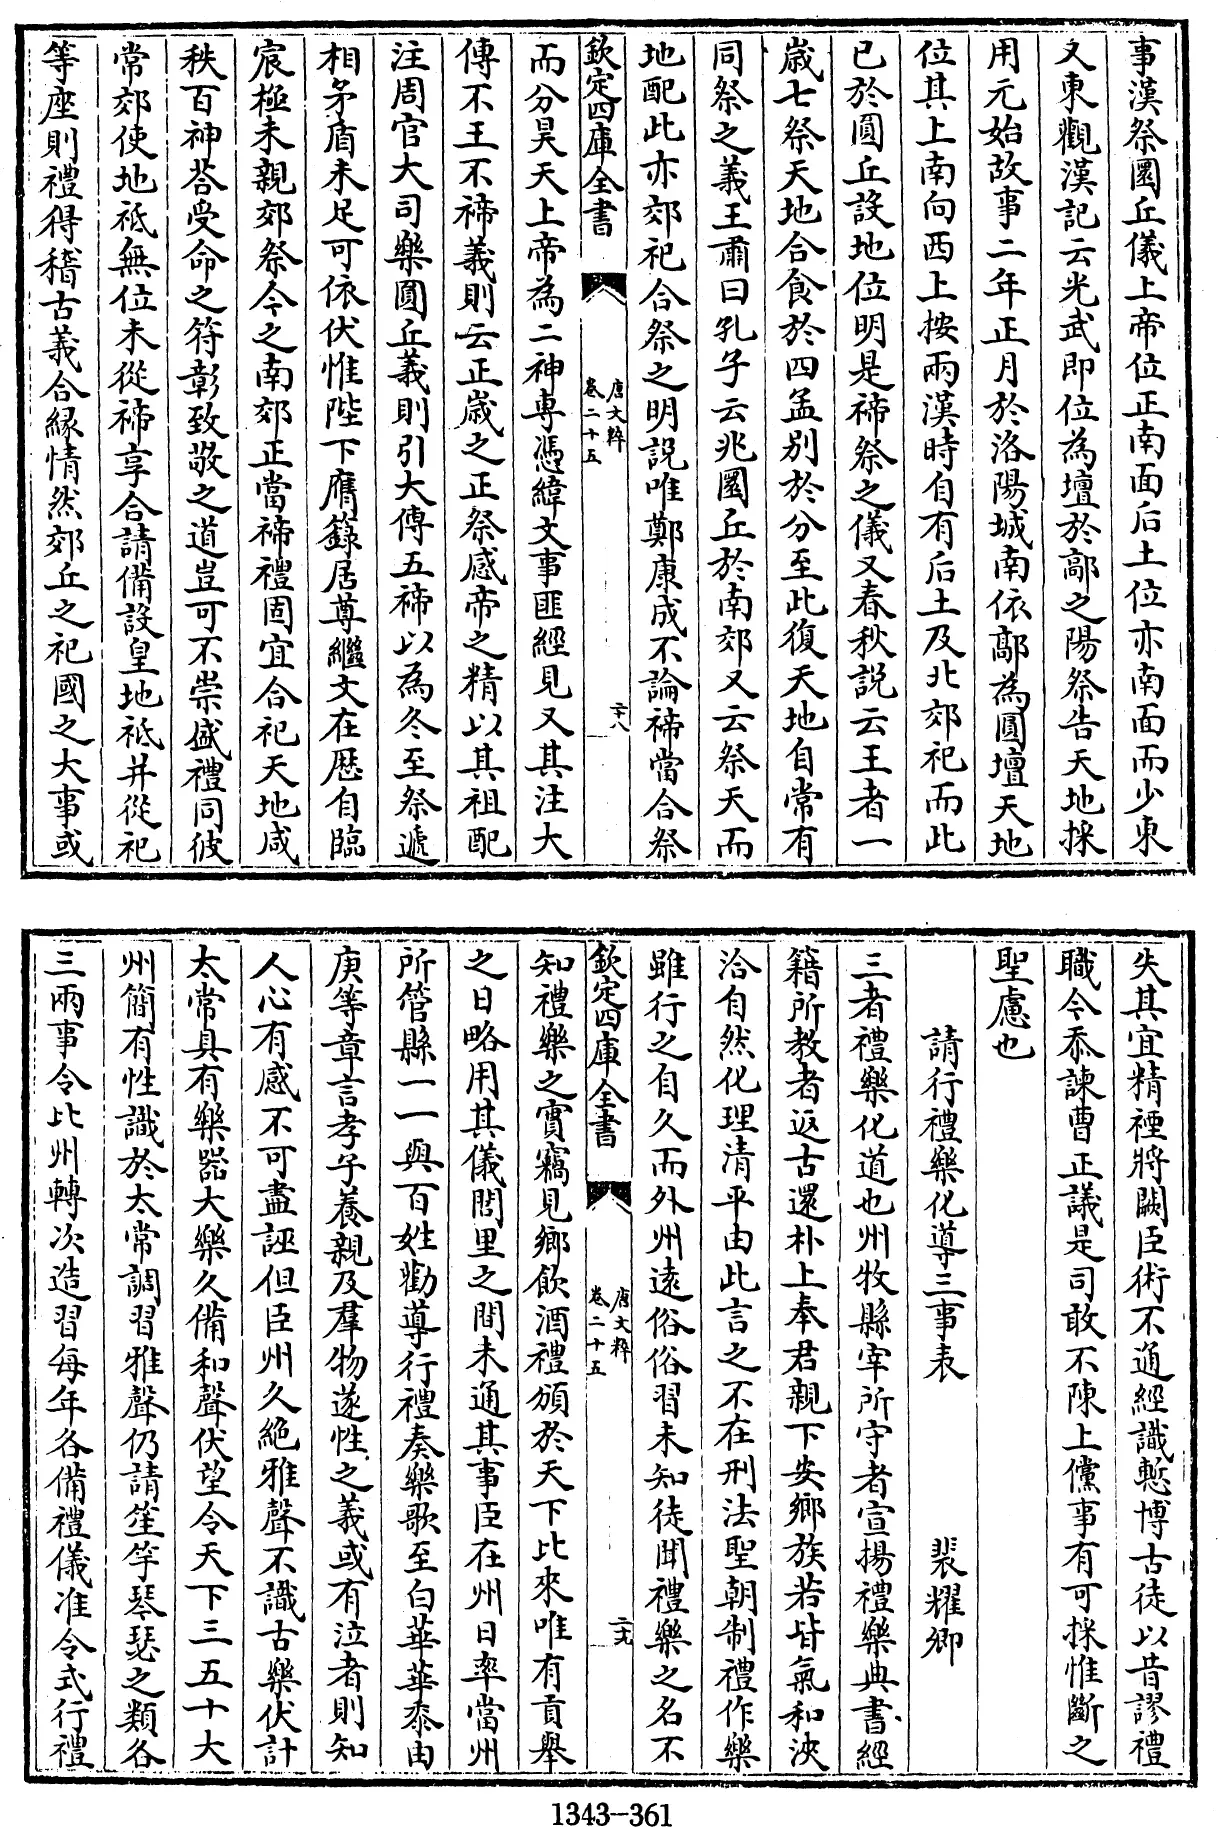 事漢祭圜丘儀上帝位正南面后土位亦南面而少東
又東觀漢記云光武即位為壇於鄗之陽祭告天地採
用元始故事二年正月於洛陽城南依鄗為圓壇天地
位其上南向西上按兩漢時自有后土及北郊祀而此
已於圓丘設地位明是禘祭之儀又春秋說云王者一
歳七祭天地合食於四孟别於分至此復天地自常有
同祭之義王肅曰孔子云兆圜丘於南郊又云祭天而
地配此亦郊祀合祭之明說唯鄭康成不論禘當合祭
欽定四庫全書
唐文粹
卷二十五
二十八
而分昊天上帝為二神專憑緯文事匪經見又其注大
傳不王不禘義則云正歳之正祭感帝之精以其祖配
注周官大司樂圓丘義則引大傳五禘以為冬至祭遞
相矛盾未足可依伏惟陛下膺籙居尊繼文在厯自臨
宸極未親郊祭今之南郊正當禘禮固宜合祀天地咸
秩百神荅受命之符彰致敬之道豈可不崇盛禮同彼
常郊使地祇無位未從禘享合請備設皇地祇并從祀
等座則禮得稽古義合縁情然郊丘之祀國之大事或
失其宜精禋將闕臣術不通經識慙博古徒以昔謬禮
職今忝諫曹正議是司敢不陳上儻事有可採惟斷之
聖慮也
請行禮樂化導三事表　裴耀卿
三者禮樂化道也州牧縣宰所守者宣揚禮樂典書經
籍所教者返古還朴上奉君親下安鄉族若皆氣和浹
洽自然化理清平由此言之不在刑法聖朝制禮作樂
雖行之自久而外州遠俗俗習未知徒聞禮樂之名不
欽定四庫全書
唐文粹
卷二十五
二十九
知禮樂之實竊見鄉飲酒禮頒於天下比來唯有貢舉
之日略用其儀閭里之間未通其事臣在州日率當州
所管縣一一與百姓勸導行禮奏樂歌至白華華黍由
庚等章言孝子養親及羣物遂性之義或有泣者則知
人心有感不可盡誣但臣州久絶雅聲不識古樂伏計
太常具有樂器大樂久備和聲伏望令天下三五十大
州簡有性識於太常調習雅聲仍請笙竽琴瑟之類各
三兩事令比州轉次造習每年各備禮儀准令式行禮
1343-361